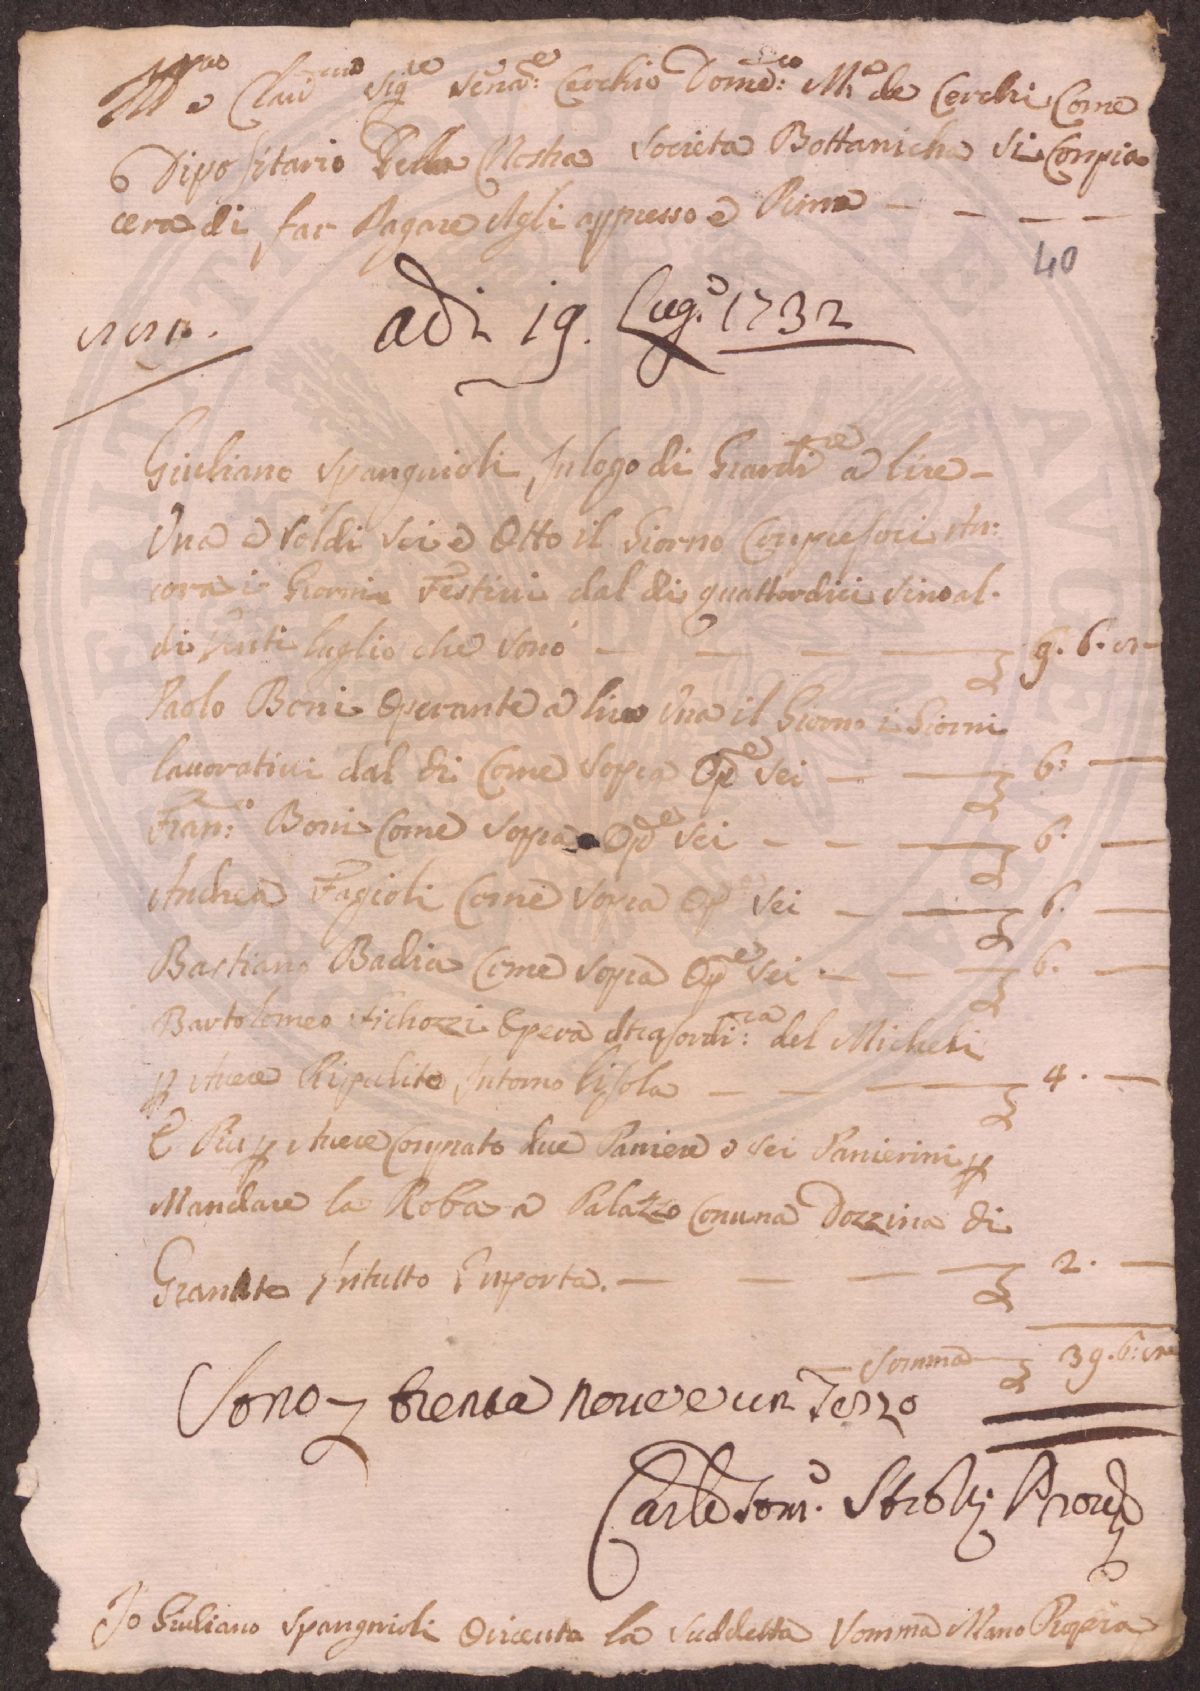 Ill.mo e Clariss.mo Sig.re Sena.re Cerchio Dome:co M.a de Cerchi Come
Dipositario Della Nostra Societa Bottanicha Si Conpia
cera di far Pagare Agli appresso e Prima — — — —
40
adi 19. Lug.o 1732
Giuliano Spangnioli In logo di Giardi.re a lire —
Una e Soldi Sei e Otto il Giorno Conpresoci An:
cora i Giorni Festivi dal di quattordici Sino al
di Venti luglio che Sono — — — — 9. 6. 8
Paolo Boni Operante a lire Una il Giorno i Giorni
lavorativi dal di Come Sopra Op.e Sei — — 6: —
Fran:o Boni Come Sopra Op.e Sei — — — 6: —
Andrea Fagioli Come Sopra Op.e Sei — — 6. —
Bastiano Badia Come Sopra Op.e Sei — — 6. —
Bartolomeo Fichozzi Opera Strasordi:ria del Micheli
p Avere Ripulito Intorno l'Isola — — — 4. —
E Piu p Avere Conprato due Paniere e Sei Panierini p
Mandare la Roba a Palazzo Con una Dozzina di
Granate In tutto Inporta. — — — — 2. —
Somma — 39. 6: 8
Sono trenta nove e un Terzo
Carlo Tom.o Strozzi Prov.e
Io Giuliano Spangnioli O riceuto la Suddetta Somma Mano Propria